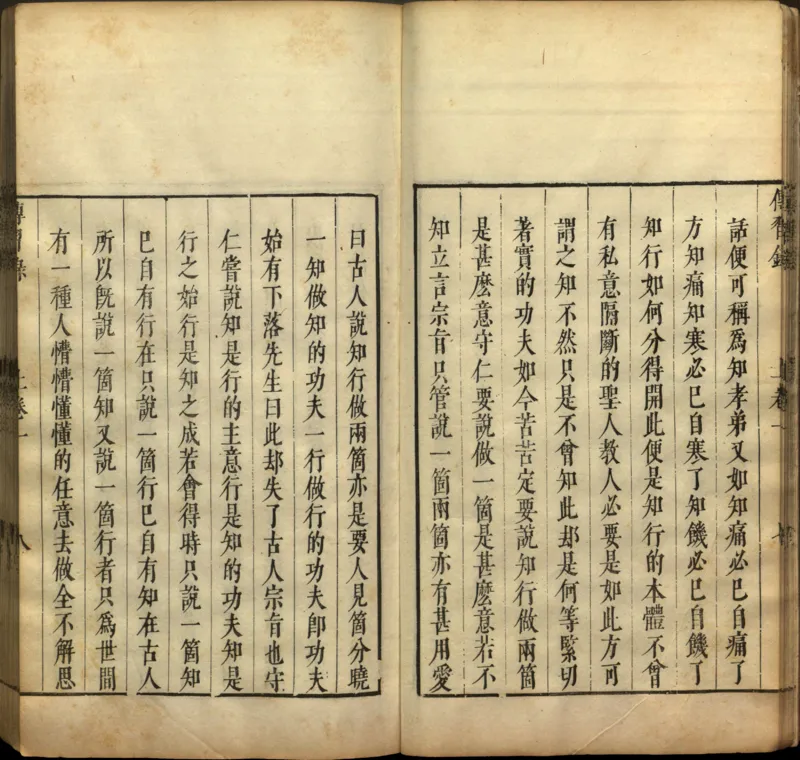 傳習錄
上卷一
七
話便可稱爲知孝弟又如知痛必已自痛了
方知痛知寒必已自寒了知饑必已自饑了
知行如何分得開此便是知行的本體不曾
有私意隔斷的聖人教人必要是如此方可
謂之知不然只是不曾知此却是何等緊切
著實的功夫如今苦苦定要說知行做兩箇
是甚麽意守仁要說做一箇是甚麽意若不
知立言宗旨只管說一箇兩箇亦有甚用愛
曰古人說知行做兩箇亦是要人見箇分曉
一知做知的功夫一行做行的功夫卽功夫
始有下落先生曰此却失了古人宗旨也守
仁嘗說知是行的主意行是知的功夫知是
行之始行是知之成若會得時只說一箇知
已自有行在只說一箇行已自有知在古人
所以旣說一箇知又說一箇行者只爲世間
有一種人懵懵懂懂的任意去做全不解思
傳習錄
上卷一
八